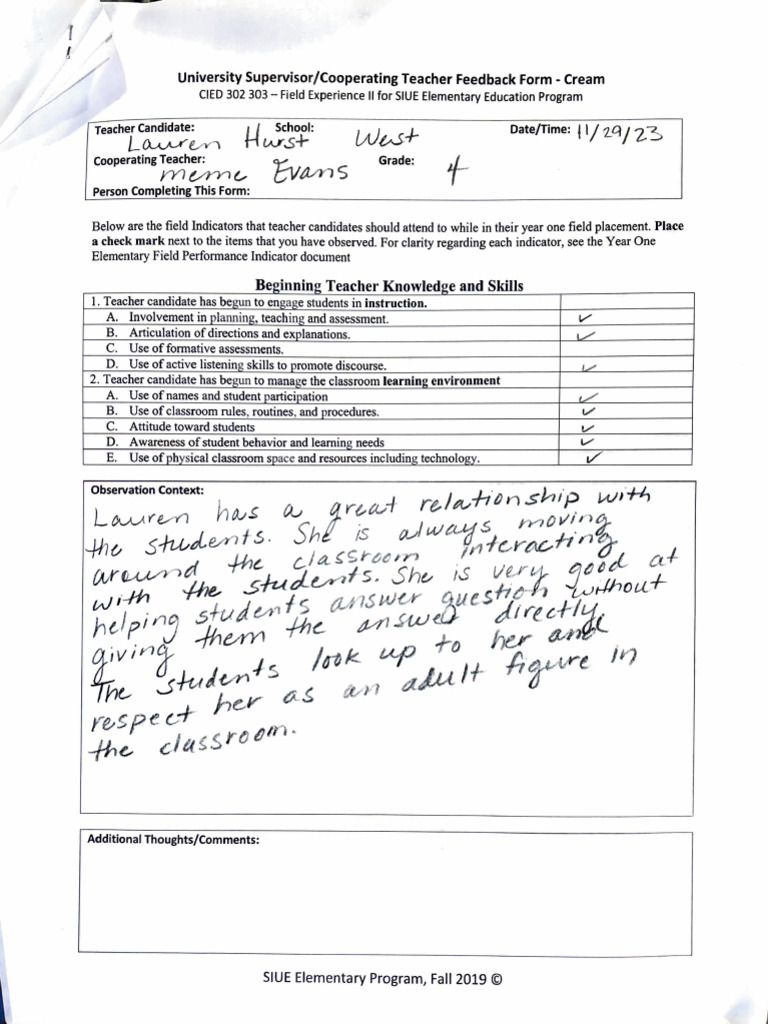 University Supervisor/Cooperating Teacher Feedback Form - Cream
CIED 302 303 – Field Experience II for SIUE Elementary Education Program
Teacher Candidate: Lauren Hurst School: West Date/Time: 11/29/23
Cooperating Teacher: meme Evans Grade: 4
Person Completing This Form:
Below are the field Indicators that teacher candidates should attend to while in their year one field placement. Place
a check mark next to the items that you have observed. For clarity regarding each indicator, see the Year One
Elementary Field Performance Indicator document
Beginning Teacher Knowledge and Skills
1. Teacher candidate has begun to engage students in instruction.
A. Involvement in planning, teaching and assessment. ✓
B. Articulation of directions and explanations. ✓
C. Use of formative assessments.
D. Use of active listening skills to promote discourse. ✓
2. Teacher candidate has begun to manage the classroom learning environment
A. Use of names and student participation ✓
B. Use of classroom rules, routines, and procedures. ✓
C. Attitude toward students ✓
D. Awareness of student behavior and learning needs ✓
E. Use of physical classroom space and resources including technology. ✓
Observation Context:
Lauren has a great relationship with
the students. She is always moving
around the classroom interacting
with the students. She is very good at
helping students answer question without
giving them the answer directly.
The students look up to her and
respect her as an adult figure in
the classroom.
Additional Thoughts/Comments:
SIUE Elementary Program, Fall 2019 ©